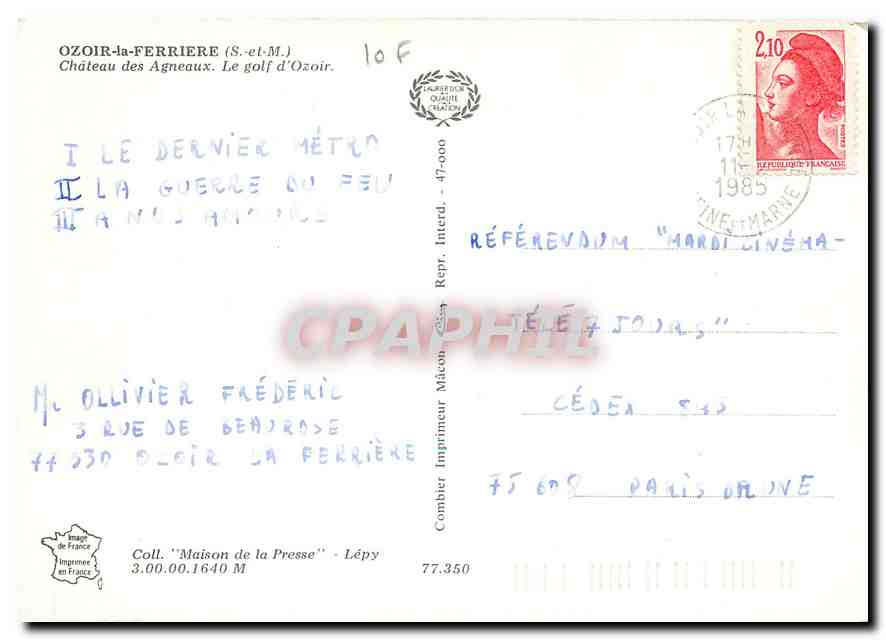 OZOIR-la-FERRIERE (S.-et-M.)
Château des Agneaux. Le golf d'Ozoir.
10 F
LAURIER D'OR
QUALITÉ
CRÉATION
2,10
POSTES
RÉPUBLIQUE FRANÇAISE
17
11
1985
SEINE ET MARNE
I LE DERNIER MÉTRO
II LA GUERRE DU FEU
III A NOS AMOURS
RÉFÉRENDUM "MARDI CINÉMA-
TÉLÉ 7 JOURS"
CÉDEX
PARIS BRUNE
CPAPHIL
Mr OLLIVIER FRÉDÉRIC
3 RUE DE BEAUROSE
77330 OZOIR LA FERRIÈRE
Combier Imprimeur Mâcon Repr. Interd. - 47-000
Image
de France
Imprimée
en France
Coll. "Maison de la Presse" - Lépy
3.00.00.1640 M
77.350